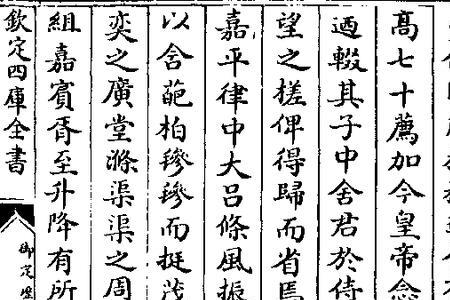 高七十薦加今皇帝念
迺輟其子中舍君於侍
望之槎俾得歸而省焉
嘉平律中大呂條風振
以含葩柏䅟䅟而挺茂
奕之廣堂滌渠渠之周
組嘉賓胥至升降有所
欽定四庫全書
御定歷